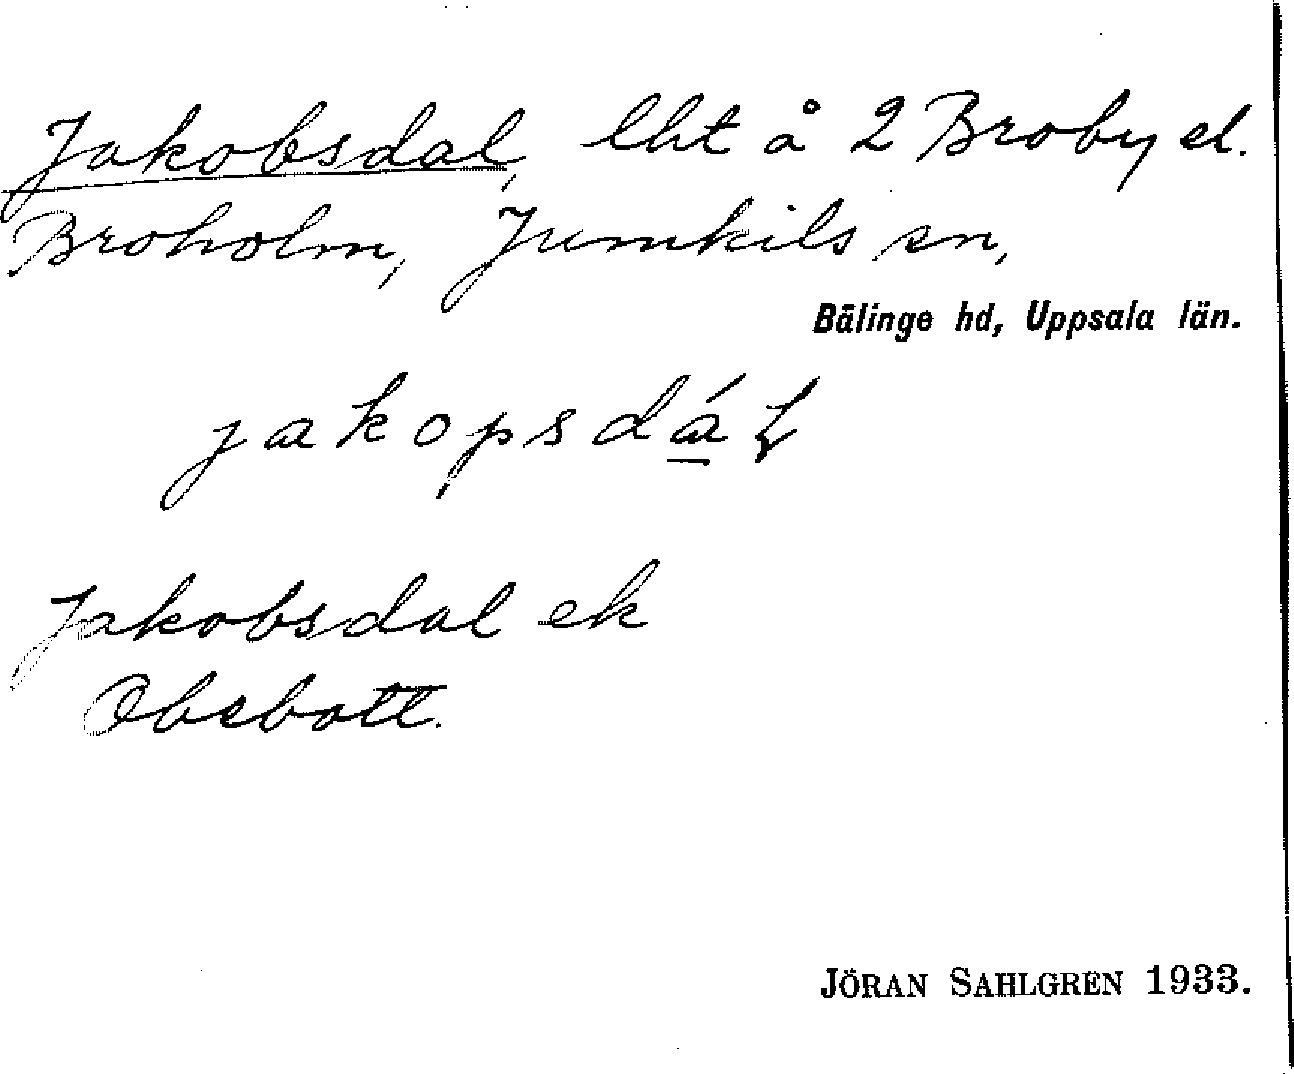 Jakobsdal, lht å 2 Broby el.
Broholm, Jumkils sn,
Bälinge hd, Uppsala län.
jakopsdáɫ
Jakobsdal ek
Obebott.
JÖRAN SAHLGREN 1933.